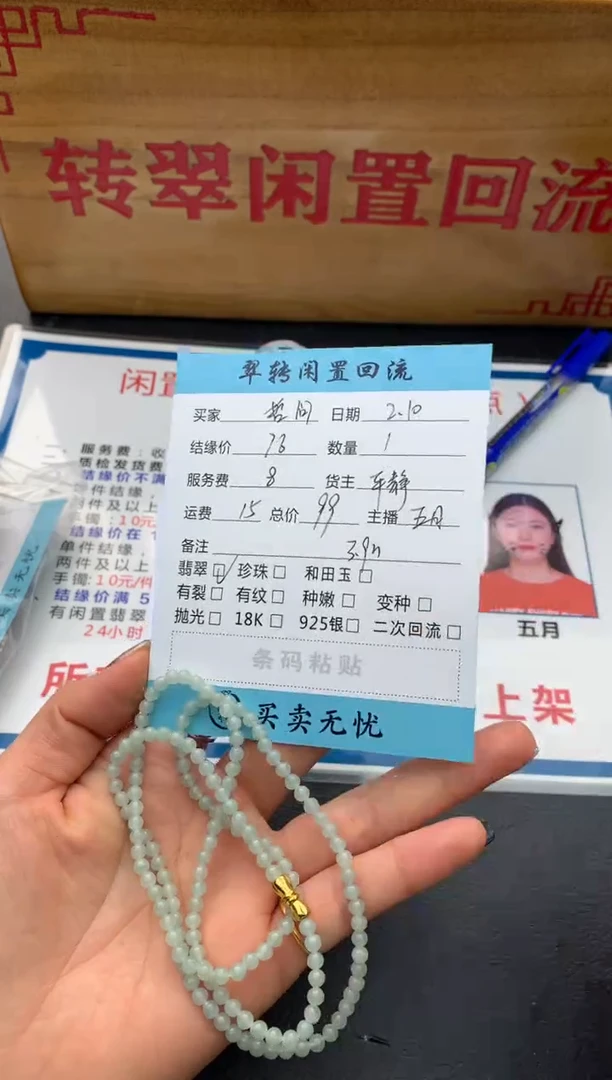 转翠闲置回流
翠转闲置回流
买家 日期 2.10
结缘价 76 数量 1
服务费 8 货主 车静
运费 15 总价 99 主播 五月
备注 3.9m
翡翠☑ 珍珠□ 和田玉□
有裂□ 有纹□ 种嫩□ 变种□
抛光□ 18K□ 925银□ 二次回流□
条码粘贴
买卖无忧
闲置
点）
二、服务费：收
质检发货费
结缘价不满
单件结缘，
两件及以上
手镯：10元
结缘价在
单件结缘，
两件及以上
手镯：10元/件
结缘价满5
有闲置翡翠
24小时
所
上架
五月
无忧